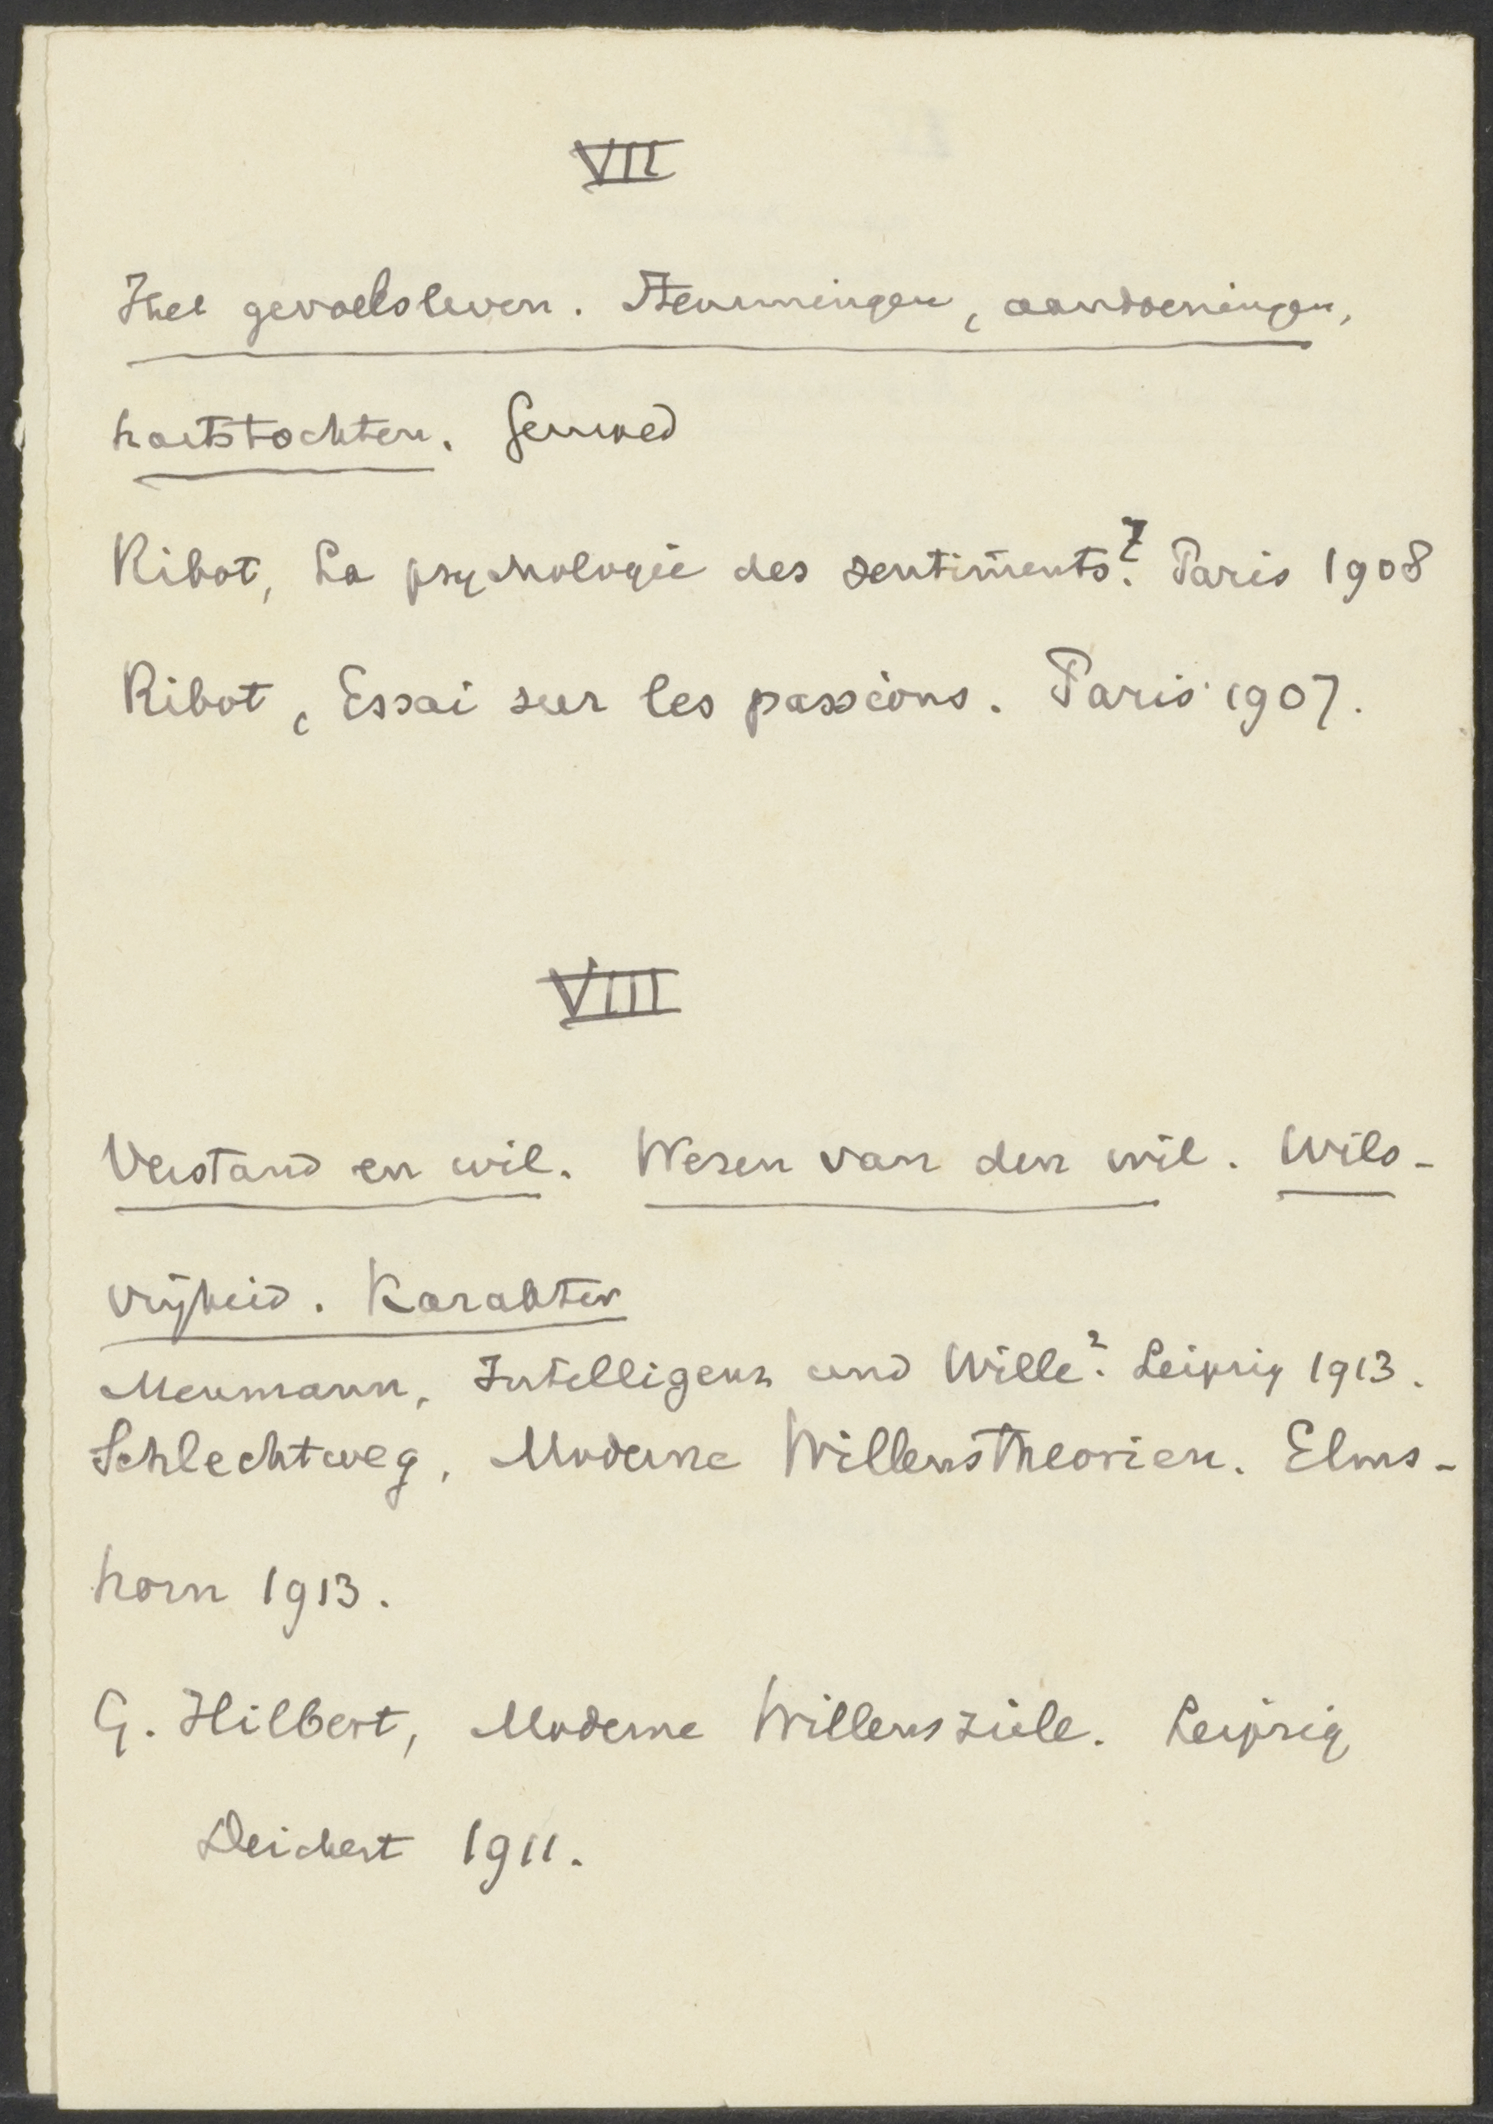 VII
Het gevoelsleven. Stemmingen, aandoeningen,
hartstochten. Gemoed
Ribot, La psychologie des sentiments⁷. Paris 1908
Ribot, Essai sur les passions. Paris 1907.
VIII
Verstand en wil. Wezen van den wil. Wils-
vrijheid. Karakter
Meumann, Intelligenz und Wille². Leipzig 1913.
Schlechtweg, Moderne Willenstheorien. Elms-
horn 1913.
G. Hilbert, Moderne Willensziele. Leipzig
Deichert 1911.